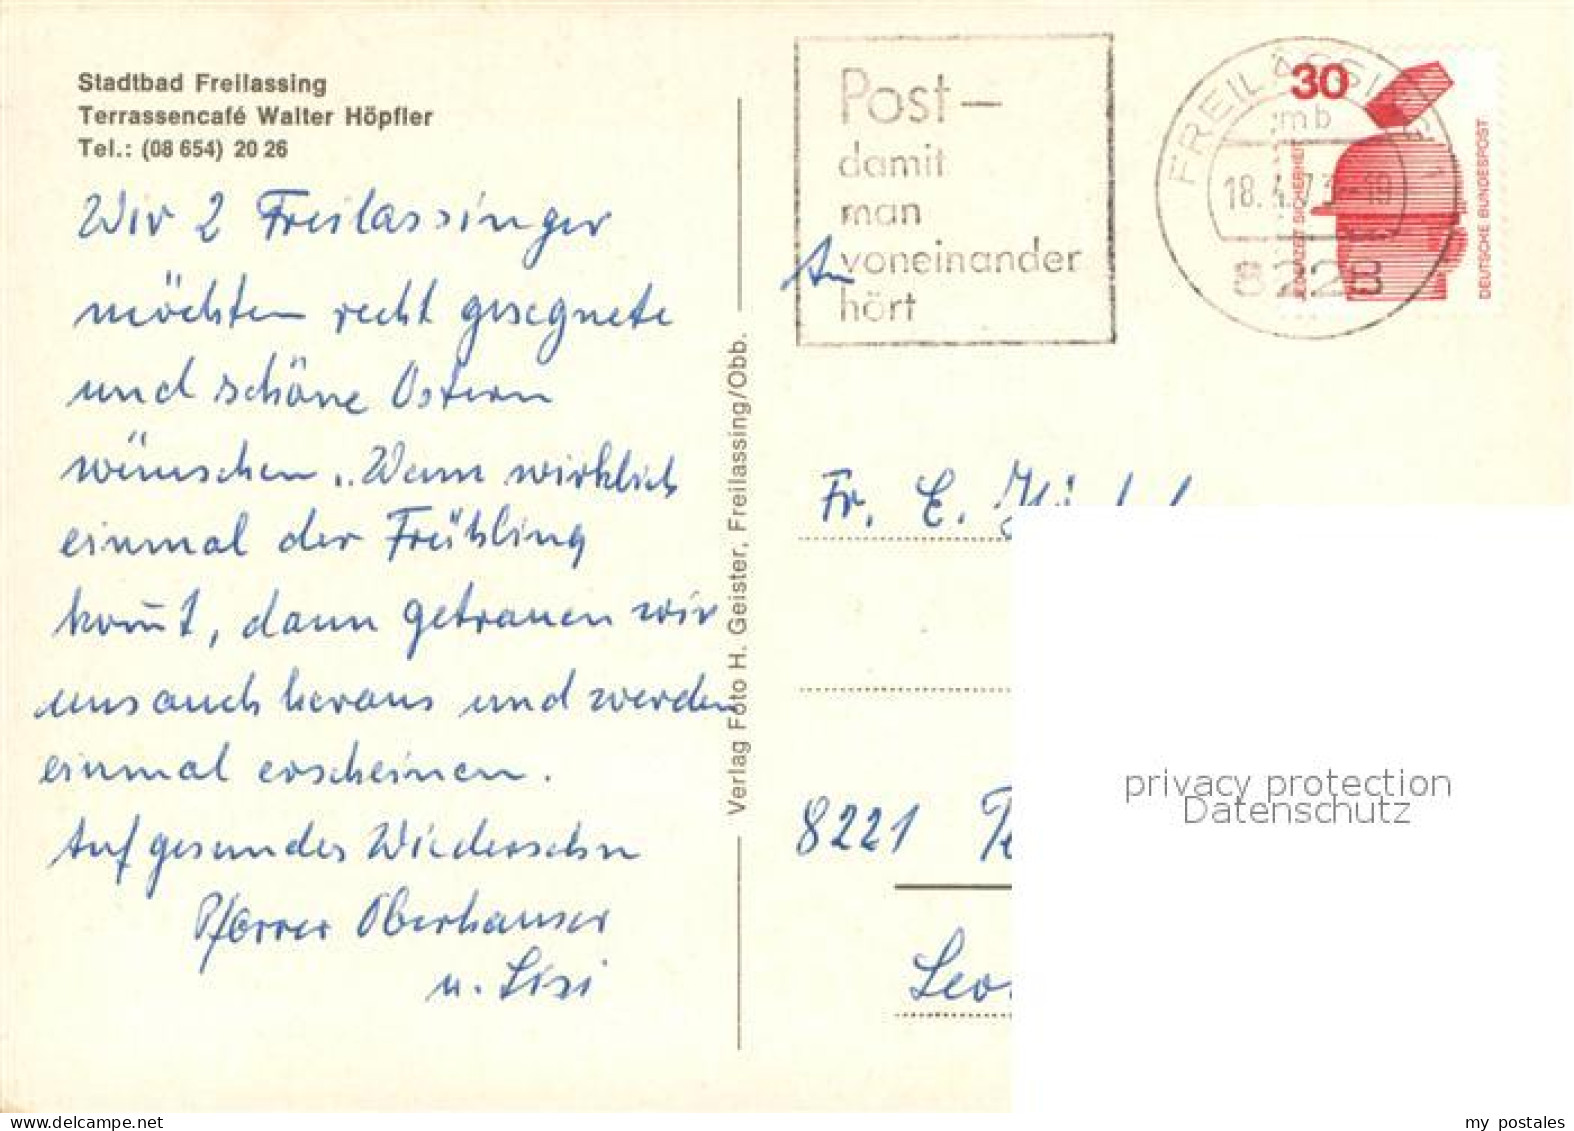 Stadtbad Freilassing
Terrassencafé Walter Höpfler
Tel.: (08 654) 20 26
Wir 2 Freilassinger
möchten recht gesegnete
und schöne Ostern
wünschen. Wenn wirklich
einmal der Frühling
kom̄t, dann getrauen wir
uns auch heraus und werden
einmal erscheinen.
Auf gesundes Wiedersehn
Pfarrer Oberhauser
u. Lisi
Verlag Foto H. Geister, Freilassing/Obb.
Post –
damit
man
voneinander
hört
FREILASSING 1
mb
18.4.7 -19
8228
30
JEDERZEIT SICHERHEIT
DEUTSCHE BUNDESPOST
An
Fr. E.
8221
privacy protection
Datenschutz
www.delcampe.net
my postales